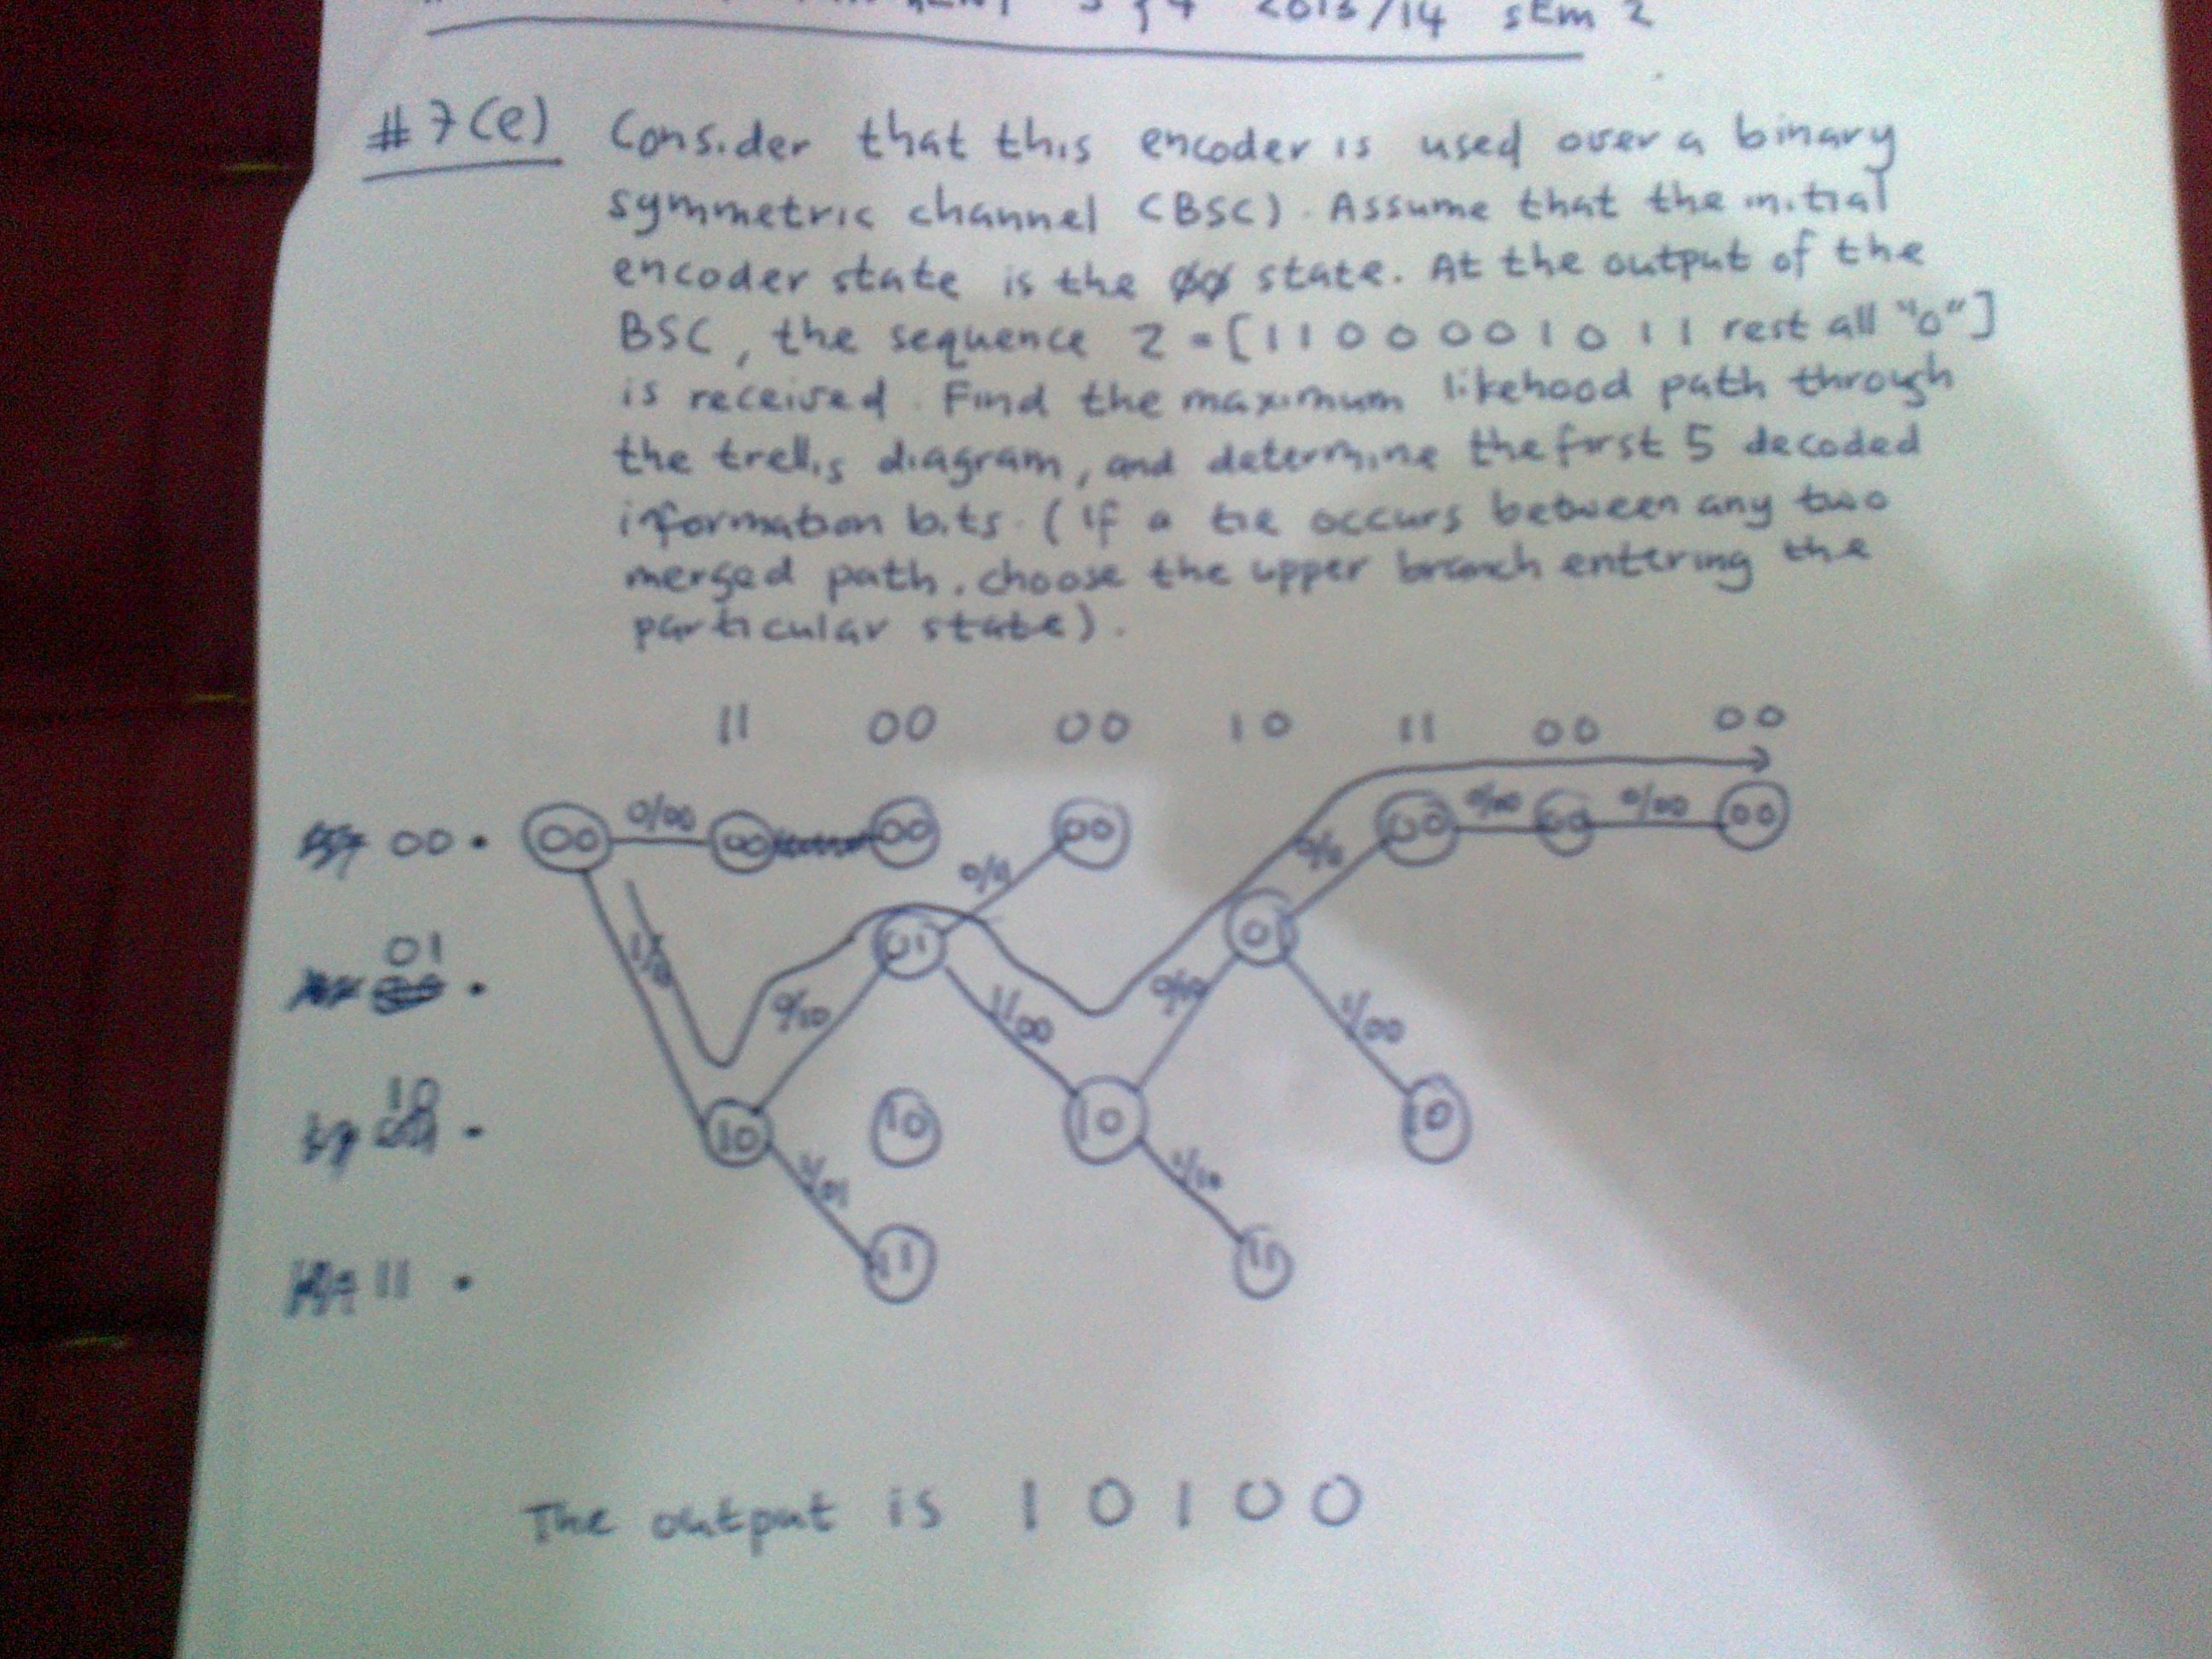 2013/14 SEM 2
#7(e) Consider that this encoder is used over a binary
symmetric channel (BSC). Assume that the initial
encoder state is the 00 state. At the output of the
BSC, the sequence Z = [1 1 0 0 0 0 1 0 1 1 rest all "0"]
is received. Find the maximum likehood path through
the trellis diagram, and determine the first 5 decoded
information bits. (If a tie occurs between any two
merged path, choose the upper branch entering the
particular state).
11 00 00 10 11 00 00
00 00 0/00 00 00 00 00 0/00 00 0/00 00
01 0/10 01 1/00 01 1/00
10 10 1/01 10 10 1/10 10
11 11 11
The output is 1 0 1 0 0